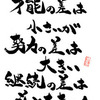 才能の差は
小さいが
努力の差は
大きい
継続の差は